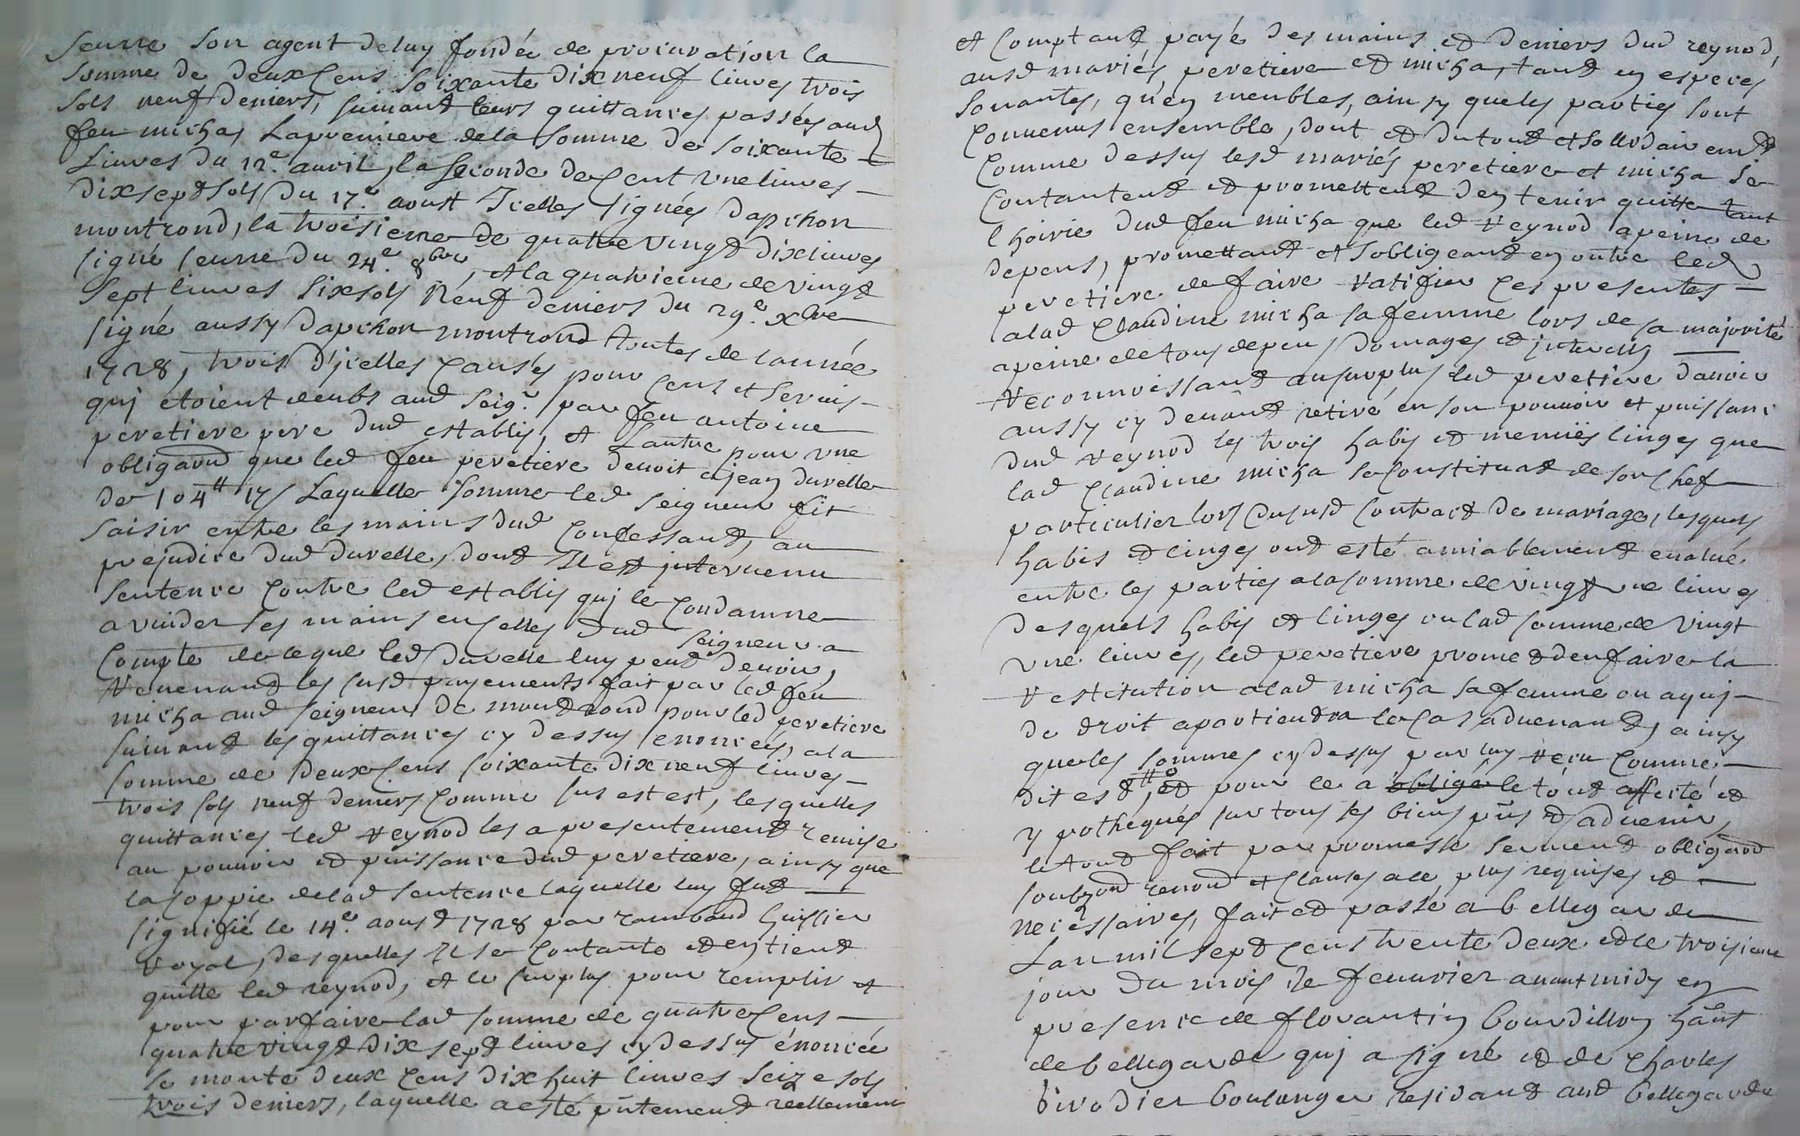 seurre son agent deluy fondée de procuration la
somme de deux cens soixante dix neuf livres trois
sols neuf deniers, suivant leurs quittances passées aud
feu micha, La premiere de la somme de soixante
Livres du 12e. avril, la seconde de Cent vne livres
dix sept sols du 17e. aoust Icelles signées dapchon
montrond, la troisieme de quatre vingt dix livres
signé seurre du 24e. 8bre, et la quatrieme de vingt
sept livres six sols neuf deniers du 29e. xbre
signé aussy dapchon montrond toutes de lannée
1728, trois d'icelles causés pour cens et servis
quj etoient deubs aud seigr. par feu antoine
peretiere pere dud establis, et Lautre pour vne
obligaõn que led feu peretiere devoit a jean durelle
de 104tt 17s Laquelle somme led seigneur fit
saisir entre les mains dud Confessant, au
prejudice dud durelle, dont Il est jntervenu
sentence Contre led establis quj le Condamne
a vuider ses mains en celles dud seigneur a
Compte de ce que led durelle luy peut devoir,
Revenant les susd payements fait par led feu
micha aud seigneur de montrond pour led peretiere
suivant les quittances cy dessus enoncées, a la
somme de deux cens soixante dix neuf livres
trois sols neuf deniers Comme sus est est, lesquelles
quittances led Reynod les a presentement remise
au pouvoir et puissance dud peretiere, ainsy que
la coppie de lad sentence laquelle luy fut
signifié le 14e. aoust 1728 par rambaud huissier
Royal, desquelles Il se Contante et en tient
quitte led reynod, et le surplus pour remplir et
pour parfaire lad somme de quatre Cens
quatre vingt dix sept livres cy dessus énoncée
se monte deux Cens dix huit livres seize sols
trois deniers, laquelle a esté pñtement réellement
et Comptant payé des mains et deniers dud reynod,
ausd mariés peretiere et micha, tant en especes
sonantes, qu'en meubles, ainsy que les parties sont
Convenus ensemble, dont et du tout et sollidairemt
Comme dessus lesd mariés peretiere et micha se
Contantent et promettent den tenir quitte tant
l hoirie dud feu micha que led Reynod a peine de
depens, promettant et sobligeant en outre led
peretiere de faire ratifier Ces presentes
a lad Claudine micha sa femme lors de sa majorité
a peine de tous depens domages et jnterests
Reconnoissant au surplus led peretiere davoir
aussy cy devant retiré en son pouvoir et puissance
dud Reynod les trois habis et memes linges que
lad Claudine micha se constituat de son Chef
particulier lors du susd Contract de mariage, lesquels
habis et linges ont esté amiablement evalué
entre les parties a la somme de vingt vne livres
desquels habis et linges ou lad somme de vingt
vne livres, led peretiere promet den faire la
Restitution a lad micha sa femme ou a quj
de droit apartiendra le Cas advenant, ainsy
que les sommes cy dessus par luy receu Comme
dites et pour ce a obligé le tout affecté et
ypothequés sur tous ses biens pñs et advenir,
le tout fait par promesse serment obligaõn
soubzõn renonõn et Clauses a ce plus requises et
necessaires, fait et passé a bellegarde
Lan mil sept Cens trente deux et le troisieme
jour du mois de fevvrier avant midy en
presence de florantin bourdillon hãnt
de bellegarde quj a signé et de Charles
birodier boulanger residant aud bellegarde